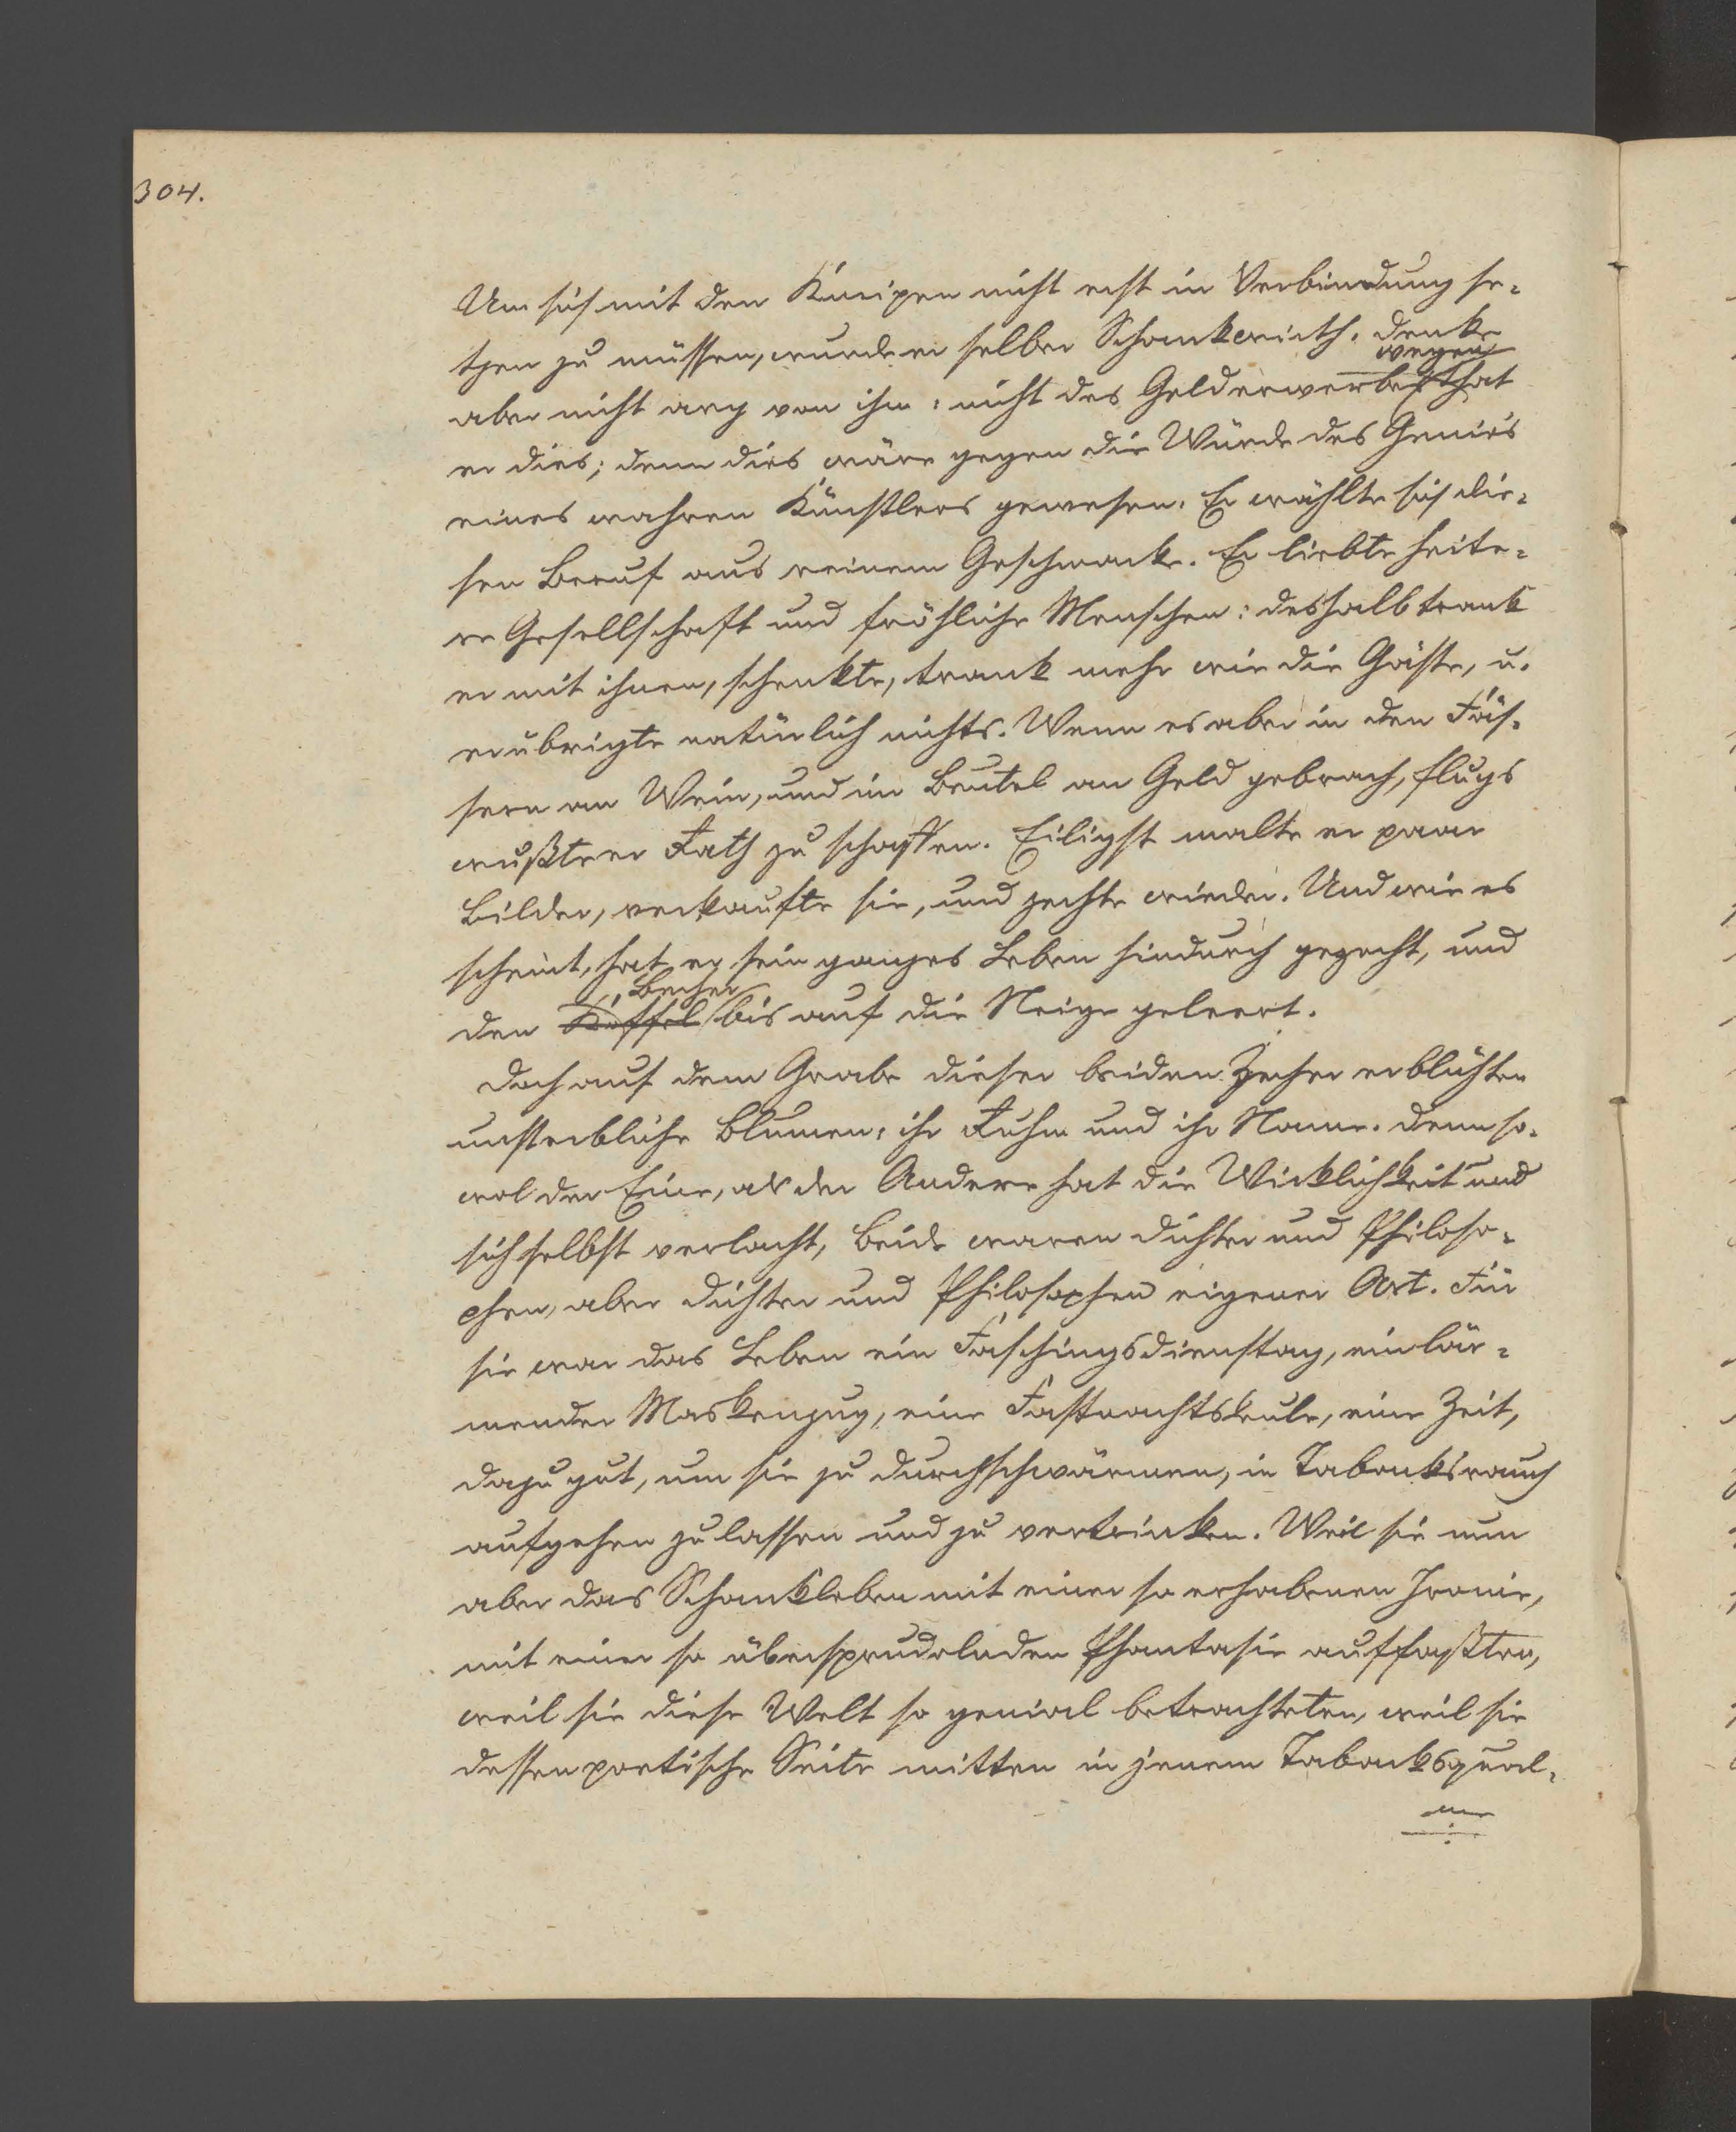 304.
Um sich mit den Kneipen nicht erst in Verbindung se-
tzen zu müssen, wurde er selber Schankwirth. Denke
wegen
aber nicht arg von ihm: nicht des Gelderwerbes that
er dies; denn dies wäre gegen die Würde des Genie's
eines wahren Künstlers gewesen. Er wählte sich die-
sen Beruf aus reinem Geschmacke. Er liebte heite-
re Gesellschaft und fröhliche Menschen: deshalb trank
er mit ihnen, schenkte, trank mehr wie die Gäste, u.
erübrigte natürlich nichts. Wenn es aber in den Fäs-
sern an Wein, und im Beutel an Geld gebrach, flugs
wußte er Rath zu schaffen. Eiligst malte er paar
Bilder, verkaufte sie, und zechte wieder. Und wie es
scheint, hat er sein ganzes Leben hindurch gezecht, und
Becher
den bis auf die Neige geleert.
Doch auf dem Grabe dieser beiden Zecher erblühten
unsterbliche Blumen: ihr Ruhm und ihr Name. Denn so-
wol der Eine, als der Andere hat die Wirklichkeit und
sich selbst verlacht, beide waren Dichter und Philoso-
phen, aber Dichter und Philosophen eigener Art. Für
sie war das Leben ein Faschingsdienstag, ein lär-
mender Maskenzug, eine Fastnachtskeule, eine Zeit,
dazu gut, um sie zu durchschwärmen, in Tabaksrauch
aufgehen zu lassen und zu vertrinken. Weil sie nun
aber das Schankleben mit einer so erhabenen Ironie,
mit einer so übersprudelnden Phantasie auffaßten,
weil sie diese Welt so genial betrachteten, weil sie
dessen poetische Seite mitten in jenem Tabaksqual-
me